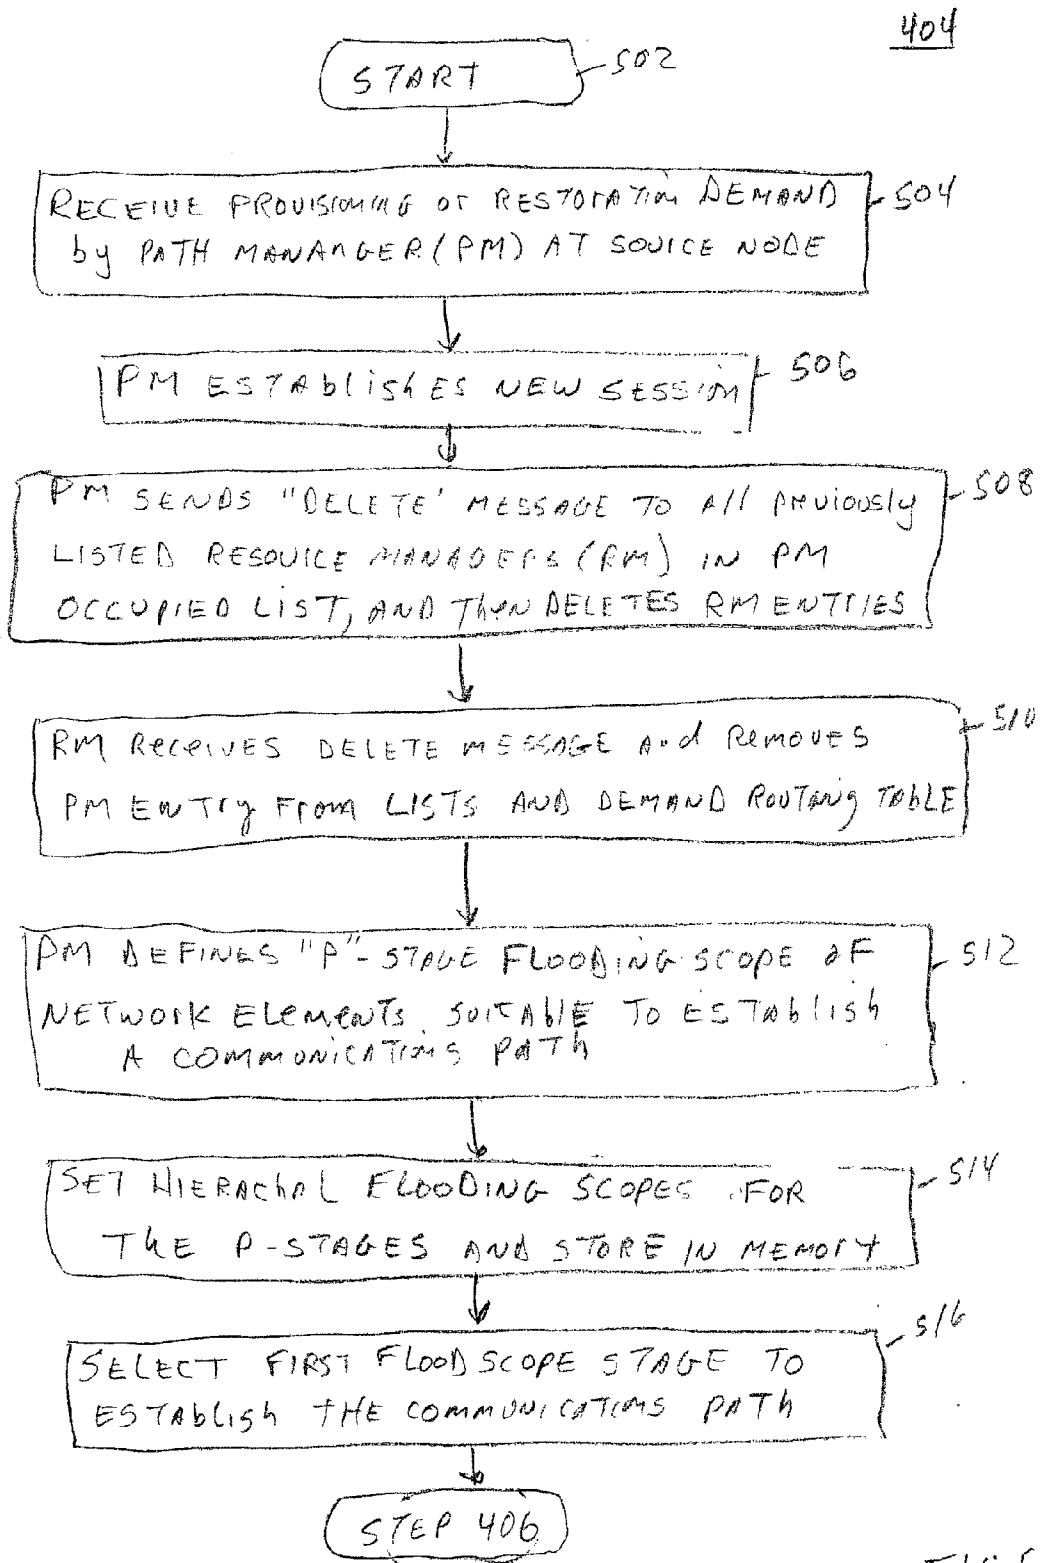 404
START
502
RECEIVE PROVISIONING OR RESTORATION DEMAND
by PATH MANANGER (PM) AT SOURCE NODE
504
PM ESTABlishES NEW SESSION
506
PM SENDS "DELETE' MESSAGE TO All PREVIOUSLY
LISTED RESOURCE MANAGERS (RM) IN PM
OCCUPIED LIST, AND ThEN DELETES RM ENTRIES
508
RM RECEIVES DELETE MESSAGE And REMOVES
PM ENTRy From LISTS AND DEMAND ROUTING TABLE
510
PM DEFINES "P"-STAGE FLOODING SCOPE OF
NETWORK ELEMENTS SUITABLE TO ESTABlish
A COMMUNICATIONS PATh
512
SET HIERACHAL FLOODING SCOPES FOR
ThE P-STAGES AND STORE IN MEMORY
514
SELECT FIRST FLOODSCOPE STAGE TO
ESTABlish THE COMMUNICATIONS PATh
516
STEP 406